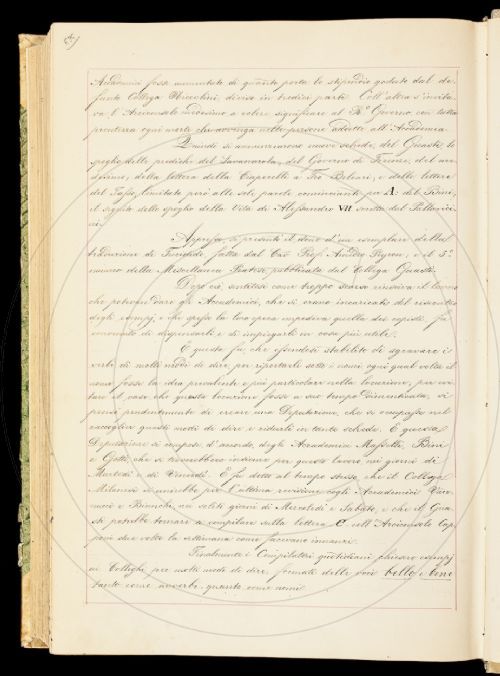 Accademici fosse aumentato di quanto porta lo stipendio goduto dal de-
funto Collega diviso in tredici parti. Coll'altra s'invita-
va l'Arciconsolo medesimo a volere significare al R.º Governo con tutta
prontezza ogni morte che avvenga nelle persone addette all'Accademia.
Quindi si annunziarono nuove schede, del Guasti lo
spoglio delle prediche del Savonarola, del Governo di Firenze, del me-
desimo, della lettera della a Feo Belcari, e delle lettere
del Tasso, limitate però alle sole parole comincianti per A: del Bini,
il seguito dello spoglio della Vita di Alessandro VII scritta dal Pallavici-
ni.
Appresso, si presentò il dono d'un esemplare della
traduzione di Tucidide fatta dal Cav. Prof. Amedeo Peyron, e il 5.º
numero della Miscellanea Pratese pubblicata dal Collega Guasti.
Dopo ciò, sentitosi come troppo scarso riusciva il lavoro
che potevan dare gli Accademici, che si erano incaricati del riscontro
degli esempj, e che spesso la loro opera impediva quella dei copisti, fu
di dispensarli e di impiegarli in cose più utili.
E questo fu, che essendosi stabilito di sgravare i
verbi di molti modi di dire, per riportarli sotto i nomi ogni qual volta il
nome fosse la idea prevalente e più particolare nella locuzione, per evi-
tare il caso che questa locuzione fosse a suo tempo dimenticata, si
pensò prudentemente di creare una Deputazione, che si occupasse nel
raccoglier questi modi di dire e ridurli in tante schede. E questa
Deputazione si compose, d'accordo, degli Accademici Bini
e Gotti, che si riunirebbero insieme per questo lavoro nei giorni di
Martedì e di Venerdì. E fu detto al tempo stesso che il Collega
Milanesi si unirebbe per l'ultima revisione cogli Accademici Van-
nucci e Bianchi, nei soliti giorni di Mercoledì e Sabato, e che il Gua-
sti potrebbe tornare a compilare sulla lettera C coll'Arciconsolo Cap-
poni due volte la settimana come facevano innanzi.
Finalmente i Compilatori quotidiani chiesero esempj
ai Colleghi per molti modi di dire, formati delle voci bello e bene
tanto come avverbi, quanto come nomi.